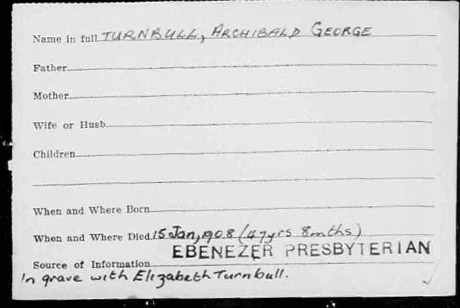 Name in full TURNBULL, ARCHIBALD GEORGE
Father
Mother
Wife or Husb.
Children
When and Where Born
When and Where Died 15 Jan, 1908 (47yrs 8mths)
EBENEZER PRESBYTERIAN
Source of Information
In grave with Elizabeth Turnbull.